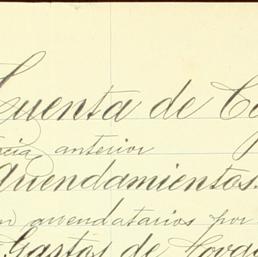 Cuenta de
anterior
Arrendamientos
arrendatarios por
Gastos de